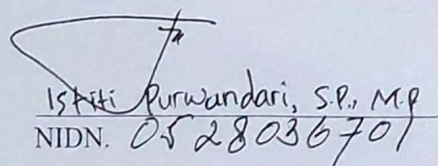 Istiti Purwandari, S.P., M.P
NIDN. 0528036701